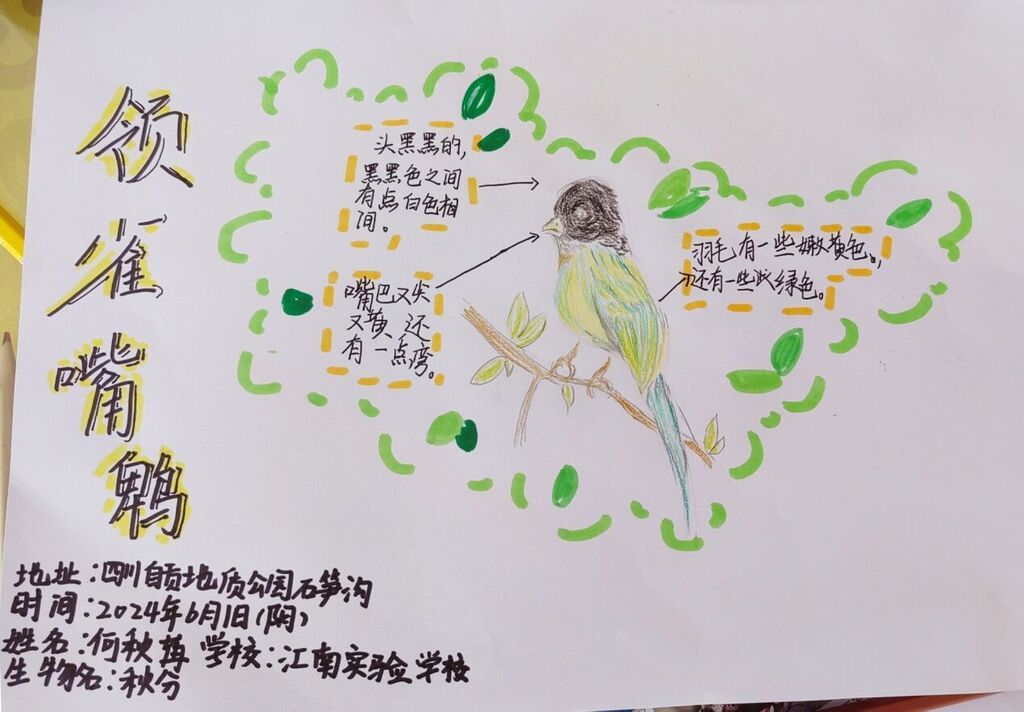 领雀嘴鹎
头黑黑的,
黑黑色之间
有点白色相
间。
嘴巴又尖
又黄 还
有一点弯。
羽毛有一些嫩黄色。,
还有一些淡绿色。
地址:四川自贡地质公园石笋沟
时间:2024年6月1日(阴)
姓名:何秋 学校:江南实验学校
生物名:秋分